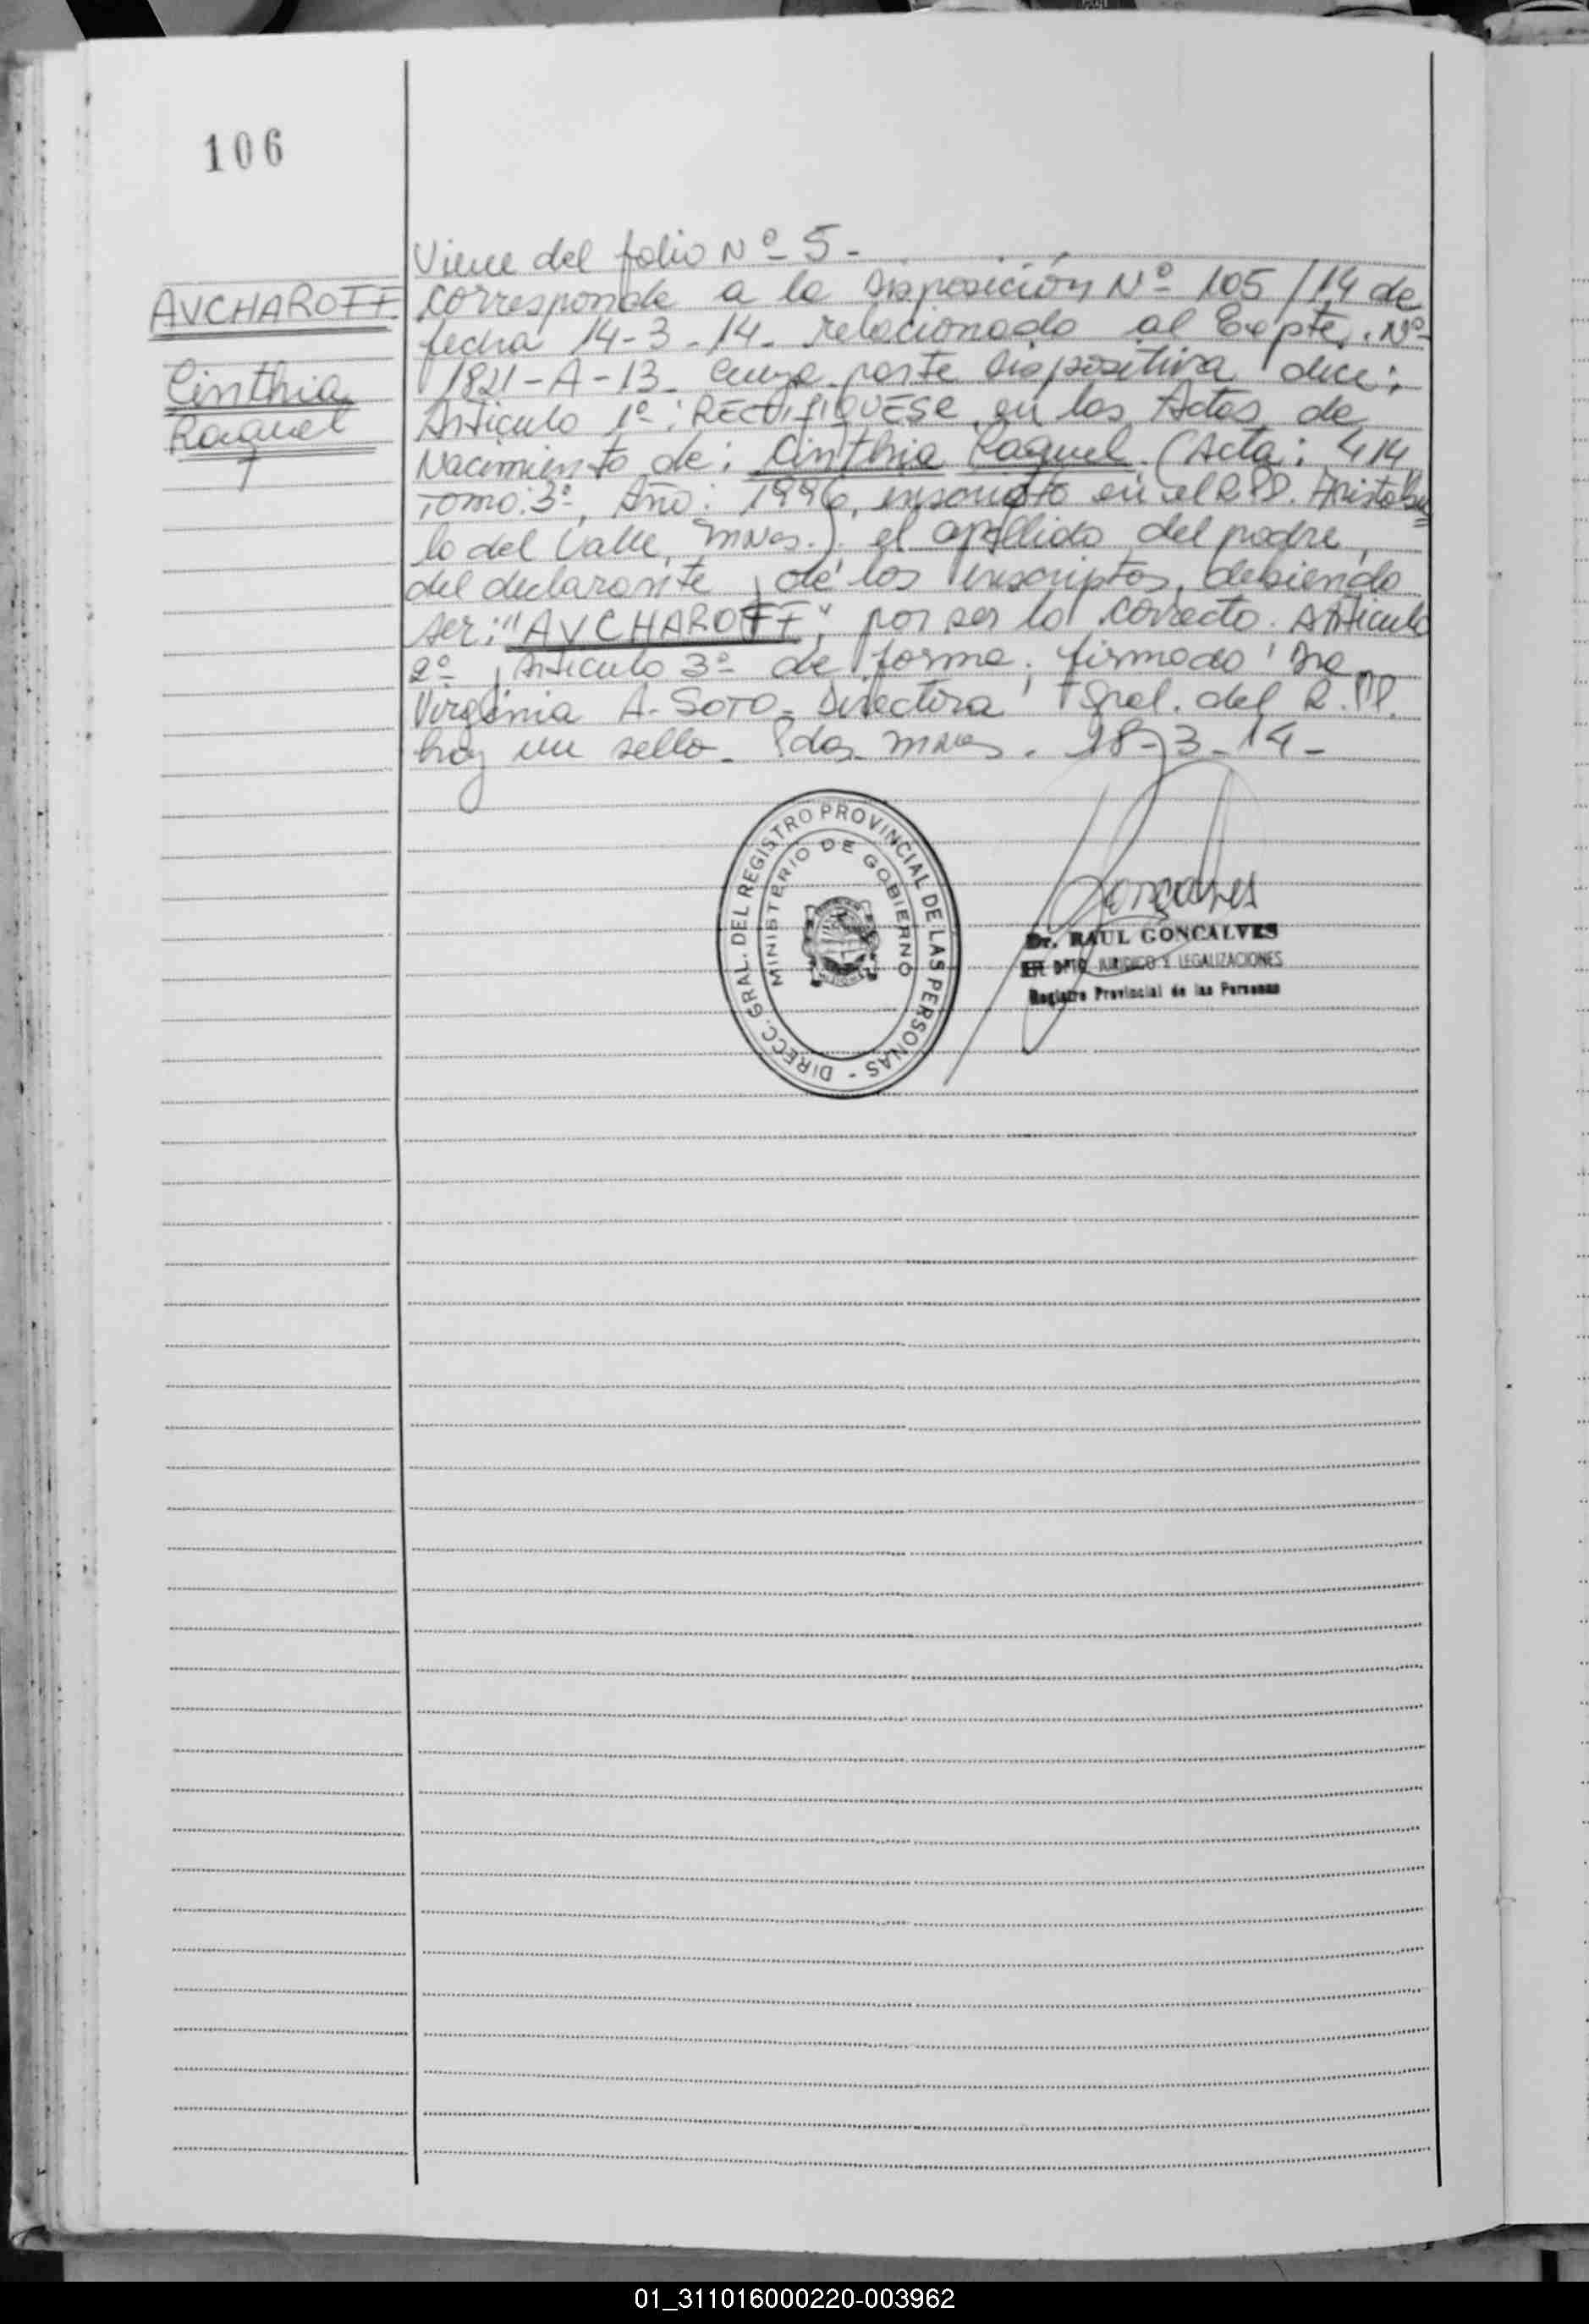 106
AVCHAROFF
Cinthia
Raquel
Viene del folio Nº 5 -
Corresponde a la Disposición Nº 105/14 de
fecha 14-3-14- relacionado al Expte. Nº
1821-A-13- Cuya parte dispositiva dice:
Artículo 1º: RECTIFIQUESE en las Actas de
Nacimiento de: Cinthia Raquel (Acta: 414
Tomo: 3º, Año: 1996, inscripto en el R.P.P. Aristobu
lo del Valle, Mnes.) el apellido del padre,
del declarante y de los inscriptos, debiendo
ser: "AVCHAROFF", por ser lo correcto. Artículo
2º y Artículo 3º de forma. firmado: Dra
Virginia A. SOTO- Directora Gral. del R.PP.
hay un sello- Pdas. Mnes. 18-3-14-
DIRECC. GRAL. DEL REGISTRO PROVINCIAL DE LAS PERSONAS -
MINISTERIO DE GOBIERNO
Goncalves
Dr. RAUL GONCALVES
DPTO. JURIDICO Y LEGALIZACIONES
Registro Provincial de las Personas
01_311016000220-003962